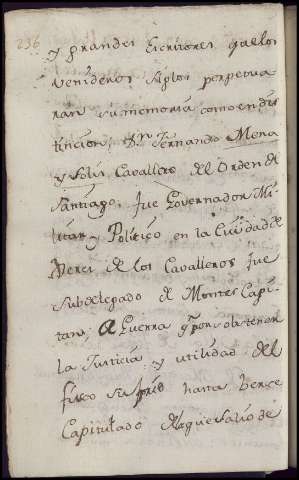 236
y grandes Escritores q̃ los
venideros siglos perpetua
ran su memoria como en dis
tincion, Dn Fernando Mena
y Solis Cavallero del Orden de
Santiago, fue Governador Mi
litar y Politico en la Ciudad de
Xerez de los Cavalleros fue
subdelegado de Montes Capi
tan, Guerra q̃ por obtener
la Justicia y utilidad del
fisco hasta verse
Capitulado de que salio de